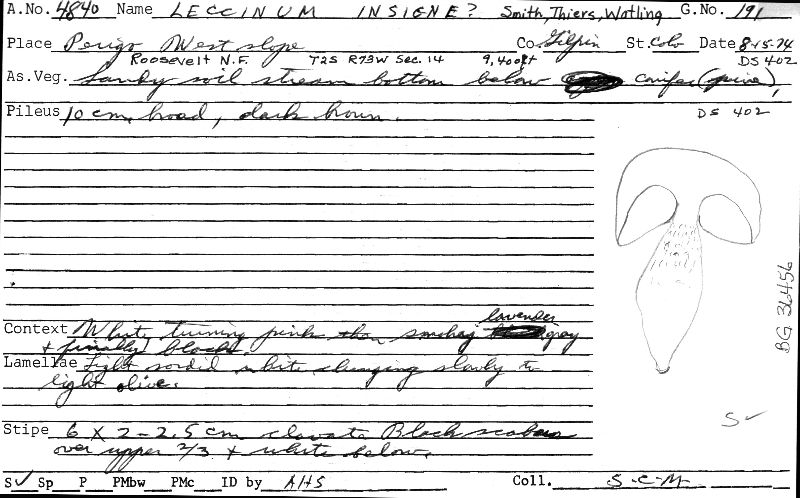 A.No. 4840 Name LECCINUM INSIGNE? Smith, Thiers, Watling G.No. 191
Place Perigo West slope Co. Gilpin St. Colo Date 8-15-74
Roosevelt N.F. T2S R73W Sec. 14 9,400ft DS 402
As.Veg. Sandy soil stream bottom below conifer (spruce),
Pileus 10 cm, broad, dark brown. DS 402
lavender
Context White, turning pink then smokey gray
+ finally black.
Lamellae Light sordid white changing slowly to
light olive.
Stipe 6 X 2-2.5 cm clavate Black scabers
over upper 2/3 + white below.
S✓ Sp P PMbw PMc ID by AHS Coll. S-C-M
S✓
BG 36456